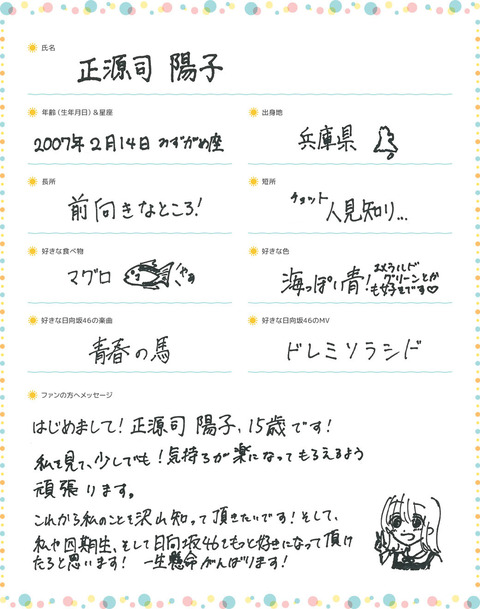 氏名
正源司 陽子
年齢(生年月日)&星座
2007年2月14日 みずがめ座
出身地
兵庫県
長所
前向きなところ!
短所
チョット人見知り...
好きな食べ物
マグロ
好きな色
海っぽい青!エメラルド
グリーンとか
も好きです♡
好きな日向坂46の楽曲
青春の馬
好きな日向坂46のMV
ドレミソラシド
ファンの方へメッセージ
はじめまして!正源司 陽子、15歳です!
私を見て、少しでも!気持ちが楽になってもらえるよう
頑張ります。
これから私のことを沢山知って頂きたいです!そして、
私や四期生、そして日向坂46をもっと好きになって頂け
たらと思います! 一生懸命がんばります!